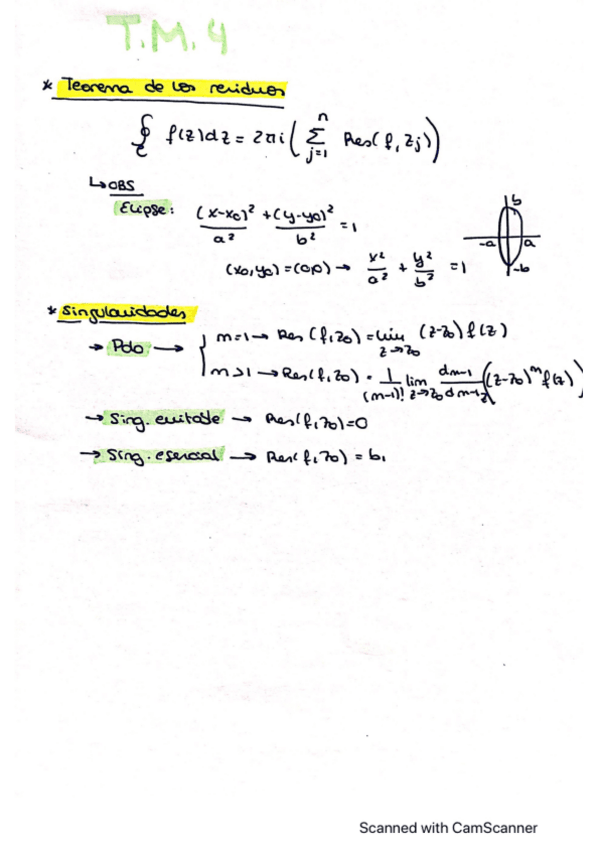 T.M.4
* Teorema de los residuos
∮_C f(z)dz = 2πi (∑_{j=1}^{n} Res(f, zj))
↳ OBS
Elipse: (x-x0)²/a² + (y-y0)²/b² = 1
b
-a a
-b
(x0,y0)=(0,0) → x²/a² + y²/b² = 1
* Singularidades
→ Polo → { m=1 → Res (f,z0) = lim_{z→z0} (z-z0) f(z)
m>1 → Res(f,z0) = 1/(m-1)! lim_{z→z0} dm-1/dm-1z ((z-z0)^m f(z))
→ Sing. evitable → Res(f,z0)=0
→ Sing. esencial → Res(f,z0) = b1
Scanned with CamScanner